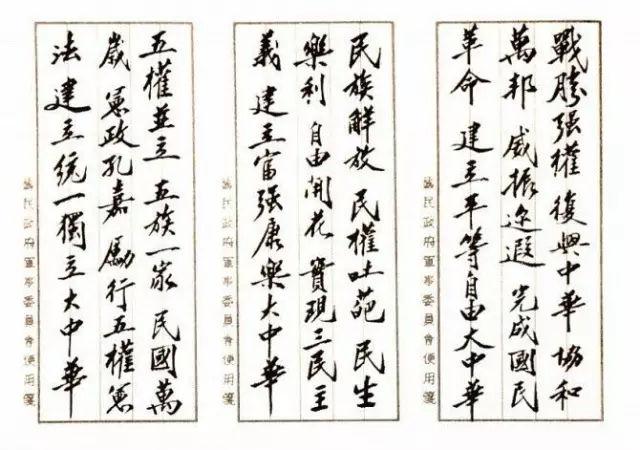 戰勝强權 復興中華 協和
萬邦 威振迩遐 完成國民
革命 建立平等自由大中華
國民政府軍事委員會便用箋
民族解放 民權吐葩 民生
樂利 自由開花 實現三民主
義 建立富强康樂大中華
國民政府軍事委員會便用箋
五權並立 五族一家 民國萬
歲 憲政孔嘉 勵行五權憲
法 建立統一獨立大中華
國民政府軍事委員會便用箋